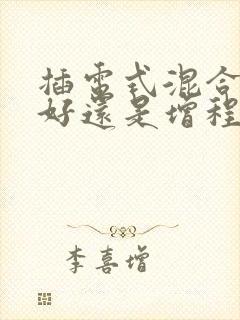 插電式混合
好還是增程
李喜增